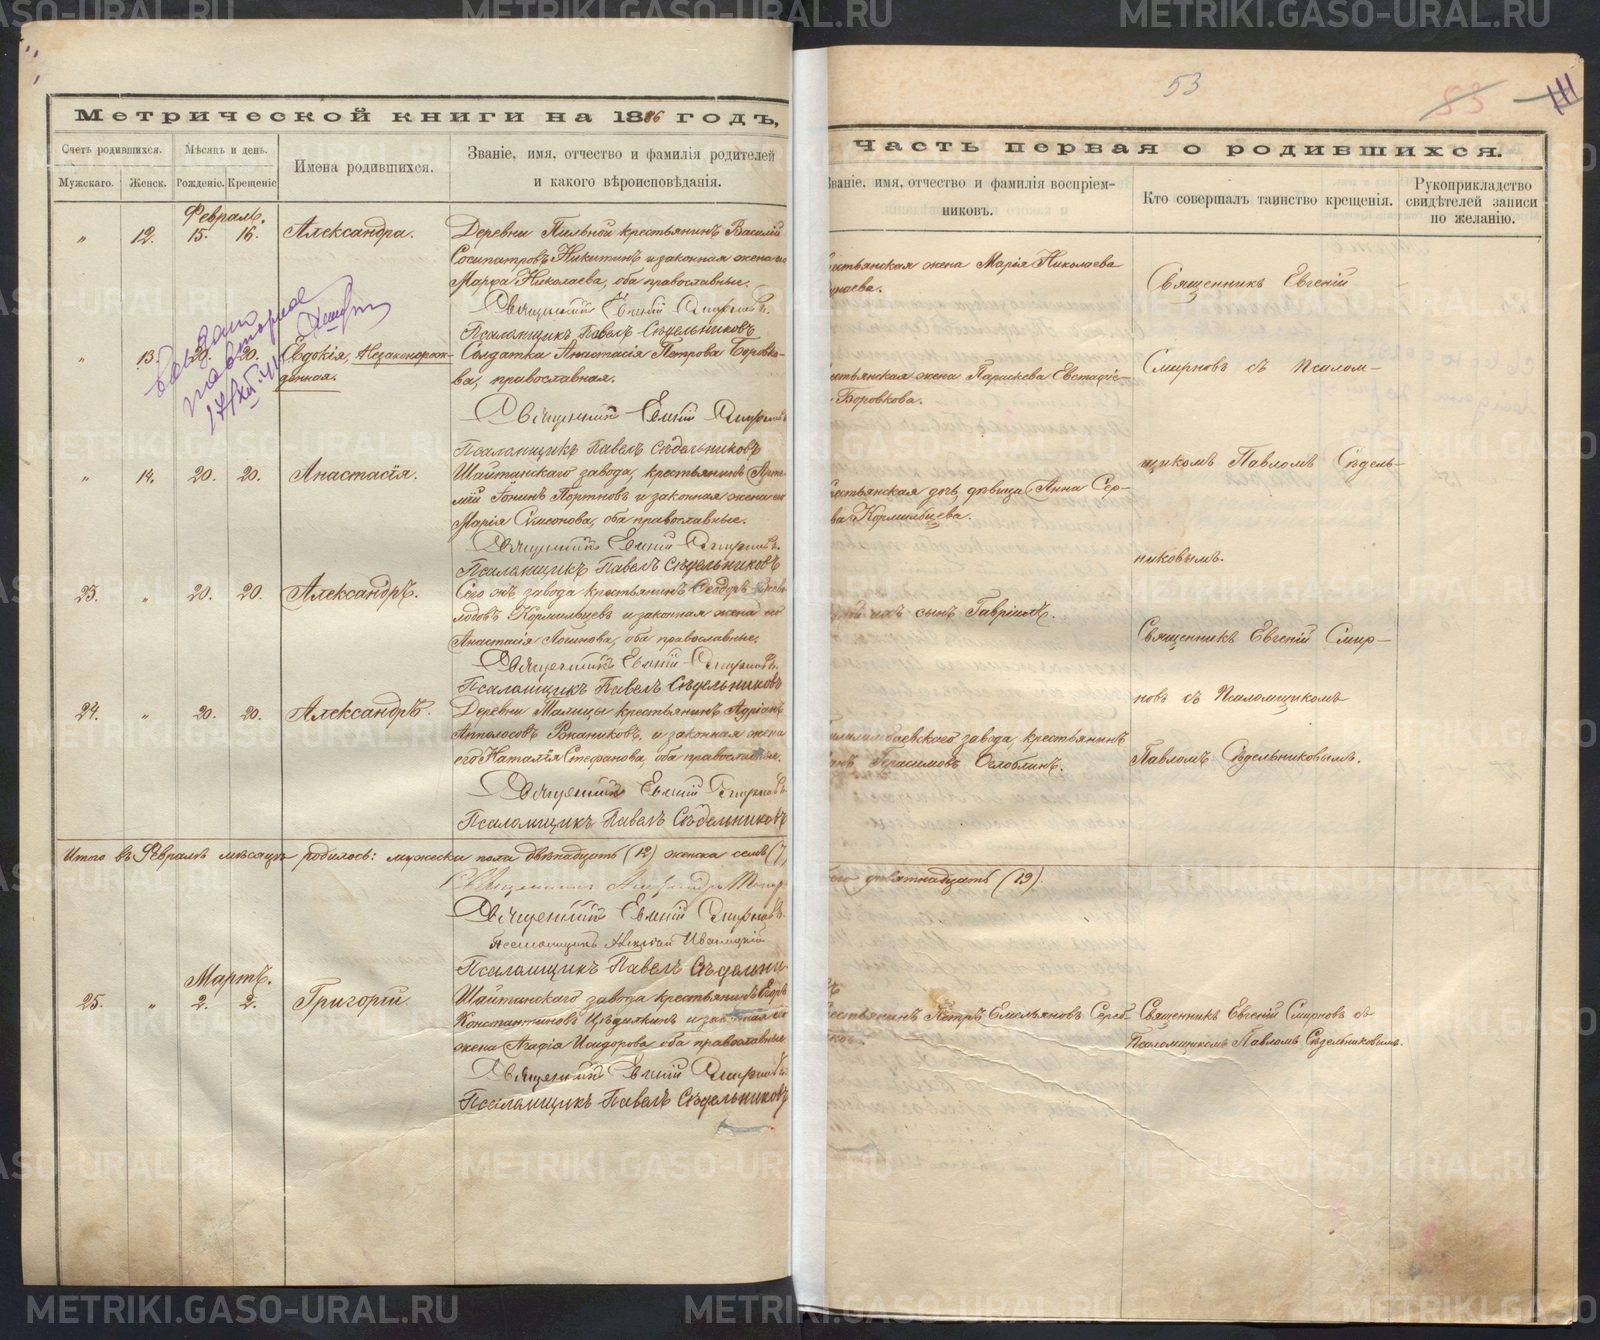 53
Метрической книги на 1886 годъ,
Счетъ родившихся.
Мѣсяцъ и день.
Имена родившихся.
Званіе, имя, отчество и фамилія родителей
и какого вѣроисповѣданія.
Мужскаго.
Женск.
Рожденіе.
Крещеніе
Февраль.
„ 12. 15. 16. Александра. Деревни Пильной крестьянинъ Василій
Сосипатровъ Никитинъ и законная жена его
Марѳа Николаева, оба православные.
Священникъ Евгеній Смирновъ.
Псаломщикъ Павелъ Сѣдельниковъ
„ 13. 20. 20. Евдокія, Незаконорож- Солдатка Анастасія Петрова Боровко-
денная. ва, православная.
Священникъ Евгеній Смирновъ
Псаломщикъ Павелъ Сѣдельниковъ
„ 14. 20. 20. Анастасія. Шайтанскаго завода, крестьянинъ Арте-
мій Іонинъ Портновъ и законная жена его
Марія Симеонова, оба православные.
Священникъ Евгеній Смирновъ.
Псаломщикъ Павелъ Сѣдельниковъ
23. „ 20. 20. Александръ. Сего же завода крестьянинъ Ѳеодоръ
Кормильцевъ и законная жена его
Анастасія Логинова, оба православные.
Священникъ Евгеній Смирновъ.
Псаломщикъ Павелъ Сѣдельниковъ
24. „ 20. 20. Александръ. Деревни Талицы крестьянинъ Адріанъ
и законная жена
его Наталія Стефанова, оба православные.
Священникъ Евгеній Смирновъ
Псаломщикъ Павелъ Сѣдельниковъ
Итого въ Февралѣ мѣсяцѣ родилось: мужеска пола двѣнадцать (12) женска семь (7)
Священникъ Евгеній Смирновъ.
Псаломщикъ Павелъ Сѣдельни
Мартъ.
25. „ 2. 2. Григорій Шайтанскаго завода крестьянинъ Егоръ
Константиновъ и законная его
жена Агафія Исидорова оба православные
Священникъ Евгеній Смирновъ.
Псаломщикъ Павелъ Сѣдельниковъ
53
Часть первая о родившихся.
Званіе, имя, отчество и фамилія воспріем-
никовъ.
Кто совершалъ таинство крещенія.
Рукоприкладство
свидѣтелей записи
по желанію.
крестьянская жена Марія Николаева
Священникъ Евгеній
крестьянская жена Параскева Евстафіе-
Боровкова.
Смирновъ съ Псалом-
щикомъ Павломъ Сѣдель-
крестьянская дочь, дѣвица Анна Сер-
ва Кормильцева.
никовымъ.
ихъ сынъ Гавріилъ.
Священникъ Евгеній Смир-
новъ съ Псаломщикомъ
завода, крестьянинъ
Герасимовъ Оглоблинъ.
Павломъ Сѣдельниковымъ.
девятнадцать (19)
крестьянинъ Петръ Емельяновъ Сереб Священникъ Евгеній Смирновъ съ
Псаломщикомъ Павломъ Сѣдельниковымъ.
METRIKI.GASO-URAL.RU